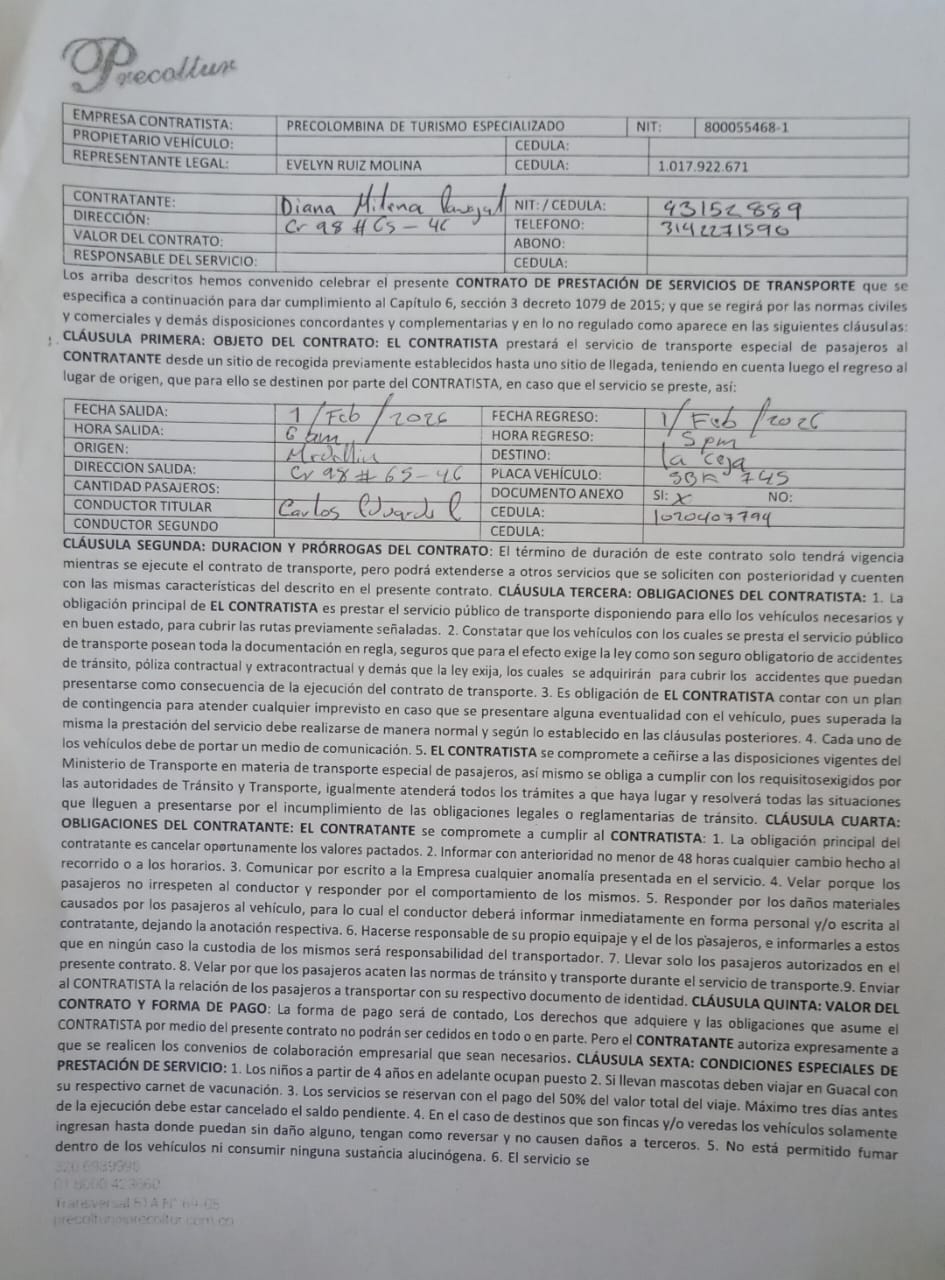 Precoltur
EMPRESA CONTRATISTA: PRECOLOMBINA DE TURISMO ESPECIALIZADO NIT: 800055468-1
PROPIETARIO VEHÍCULO: CEDULA:
REPRESENTANTE LEGAL: EVELYN RUIZ MOLINA CEDULA: 1.017.922.671
CONTRATANTE: Diana Milena NIT: / CEDULA: 43152889
DIRECCIÓN: Cr 98 # 65 - 46 TELEFONO: 3142271590
VALOR DEL CONTRATO: ABONO:
RESPONSABLE DEL SERVICIO: CEDULA:
Los arriba descritos hemos convenido celebrar el presente CONTRATO DE PRESTACIÓN DE SERVICIOS DE TRANSPORTE que se
especifica a continuación para dar cumplimiento al Capítulo 6, sección 3 decreto 1079 de 2015; y que se regirá por las normas civiles
y comerciales y demás disposiciones concordantes y complementarias y en lo no regulado como aparece en las siguientes cláusulas:
CLÁUSULA PRIMERA: OBJETO DEL CONTRATO: EL CONTRATISTA prestará el servicio de transporte especial de pasajeros al
CONTRATANTE desde un sitio de recogida previamente establecidos hasta uno sitio de llegada, teniendo en cuenta luego el regreso al
lugar de origen, que para ello se destinen por parte del CONTRATISTA, en caso que el servicio se preste, así:
FECHA SALIDA: 1/Feb/2026 FECHA REGRESO: 1/Feb/2026
HORA SALIDA: 6 am HORA REGRESO: 5 pm
ORIGEN: Medellin DESTINO: la ceja
DIRECCION SALIDA: Cr 98 # 65-46 PLACA VEHÍCULO: 745
CANTIDAD PASAJEROS: DOCUMENTO ANEXO SI: X NO:
CONDUCTOR TITULAR Carlos Eduardo CEDULA: 1020407794
CONDUCTOR SEGUNDO CEDULA:
CLÁUSULA SEGUNDA: DURACION Y PRÓRROGAS DEL CONTRATO: El término de duración de este contrato solo tendrá vigencia
mientras se ejecute el contrato de transporte, pero podrá extenderse a otros servicios que se soliciten con posterioridad y cuenten
con las mismas características del descrito en el presente contrato. CLÁUSULA TERCERA: OBLIGACIONES DEL CONTRATISTA: 1. La
obligación principal de EL CONTRATISTA es prestar el servicio público de transporte disponiendo para ello los vehículos necesarios y
en buen estado, para cubrir las rutas previamente señaladas. 2. Constatar que los vehículos con los cuales se presta el servicio público
de transporte posean toda la documentación en regla, seguros que para el efecto exige la ley como son seguro obligatorio de accidentes
de tránsito, póliza contractual y extracontractual y demás que la ley exija, los cuales se adquirirán para cubrir los accidentes que puedan
presentarse como consecuencia de la ejecución del contrato de transporte. 3. Es obligación de EL CONTRATISTA contar con un plan
de contingencia para atender cualquier imprevisto en caso que se presentare alguna eventualidad con el vehículo, pues superada la
misma la prestación del servicio debe realizarse de manera normal y según lo establecido en las cláusulas posteriores. 4. Cada uno de
los vehículos debe de portar un medio de comunicación. 5. EL CONTRATISTA se compromete a ceñirse a las disposiciones vigentes del
Ministerio de Transporte en materia de transporte especial de pasajeros, así mismo se obliga a cumplir con los requisitosexigidos por
las autoridades de Tránsito y Transporte, igualmente atenderá todos los trámites a que haya lugar y resolverá todas las situaciones
que lleguen a presentarse por el incumplimiento de las obligaciones legales o reglamentarias de tránsito. CLÁUSULA CUARTA:
OBLIGACIONES DEL CONTRATANTE: EL CONTRATANTE se compromete a cumplir al CONTRATISTA: 1. La obligación principal del
contratante es cancelar oportunamente los valores pactados. 2. Informar con anterioridad no menor de 48 horas cualquier cambio hecho al
recorrido o a los horarios. 3. Comunicar por escrito a la Empresa cualquier anomalía presentada en el servicio. 4. Velar porque los
pasajeros no irrespeten al conductor y responder por el comportamiento de los mismos. 5. Responder por los daños materiales
causados por los pasajeros al vehículo, para lo cual el conductor deberá informar inmediatamente en forma personal y/o escrita al
contratante, dejando la anotación respectiva. 6. Hacerse responsable de su propio equipaje y el de los pasajeros, e informarles a estos
que en ningún caso la custodia de los mismos será responsabilidad del transportador. 7. Llevar solo los pasajeros autorizados en el
presente contrato. 8. Velar por que los pasajeros acaten las normas de tránsito y transporte durante el servicio de transporte.9. Enviar
al CONTRATISTA la relación de los pasajeros a transportar con su respectivo documento de identidad. CLÁUSULA QUINTA: VALOR DEL
CONTRATO Y FORMA DE PAGO: La forma de pago será de contado, Los derechos que adquiere y las obligaciones que asume el
CONTRATISTA por medio del presente contrato no podrán ser cedidos en todo o en parte. Pero el CONTRATANTE autoriza expresamente a
que se realicen los convenios de colaboración empresarial que sean necesarios. CLÁUSULA SEXTA: CONDICIONES ESPECIALES DE
PRESTACIÓN DE SERVICIO: 1. Los niños a partir de 4 años en adelante ocupan puesto 2. Si llevan mascotas deben viajar en Guacal con
su respectivo carnet de vacunación. 3. Los servicios se reservan con el pago del 50% del valor total del viaje. Máximo tres días antes
de la ejecución debe estar cancelado el saldo pendiente. 4. En el caso de destinos que son fincas y/o veredas los vehículos solamente
ingresan hasta donde puedan sin daño alguno, tengan como reversar y no causen daños a terceros. 5. No está permitido fumar
dentro de los vehículos ni consumir ninguna sustancia alucinógena. 6. El servicio se